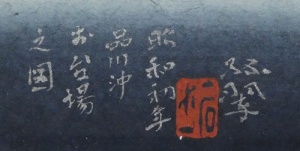 昭和初年
品川沖
お台場
之図